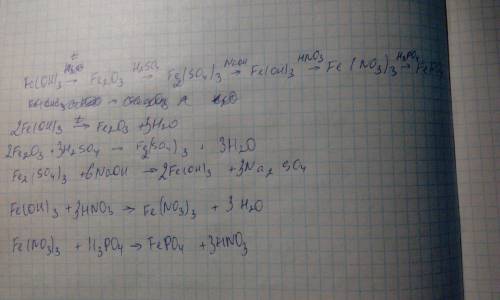 Fe(OH)3 →t Fe2O3 →H2SO4 Fe2(SO4)3 →NaOH Fe(OH)3 →HNO3 Fe(NO3)3 →H3PO4 FePO4
2Fe(OH)3 →t Fe2O3 + 3H2O
2Fe2O3 + 3H2SO4 → Fe2(SO4)3 + 3H2O
Fe2(SO4)3 + 6NaOH → 2Fe(OH)3 + 3Na2SO4
Fe(OH)3 + 3HNO3 → Fe(NO3)3 + 3H2O
Fe(NO3)3 + H3PO4 → FePO4 + 3HNO3